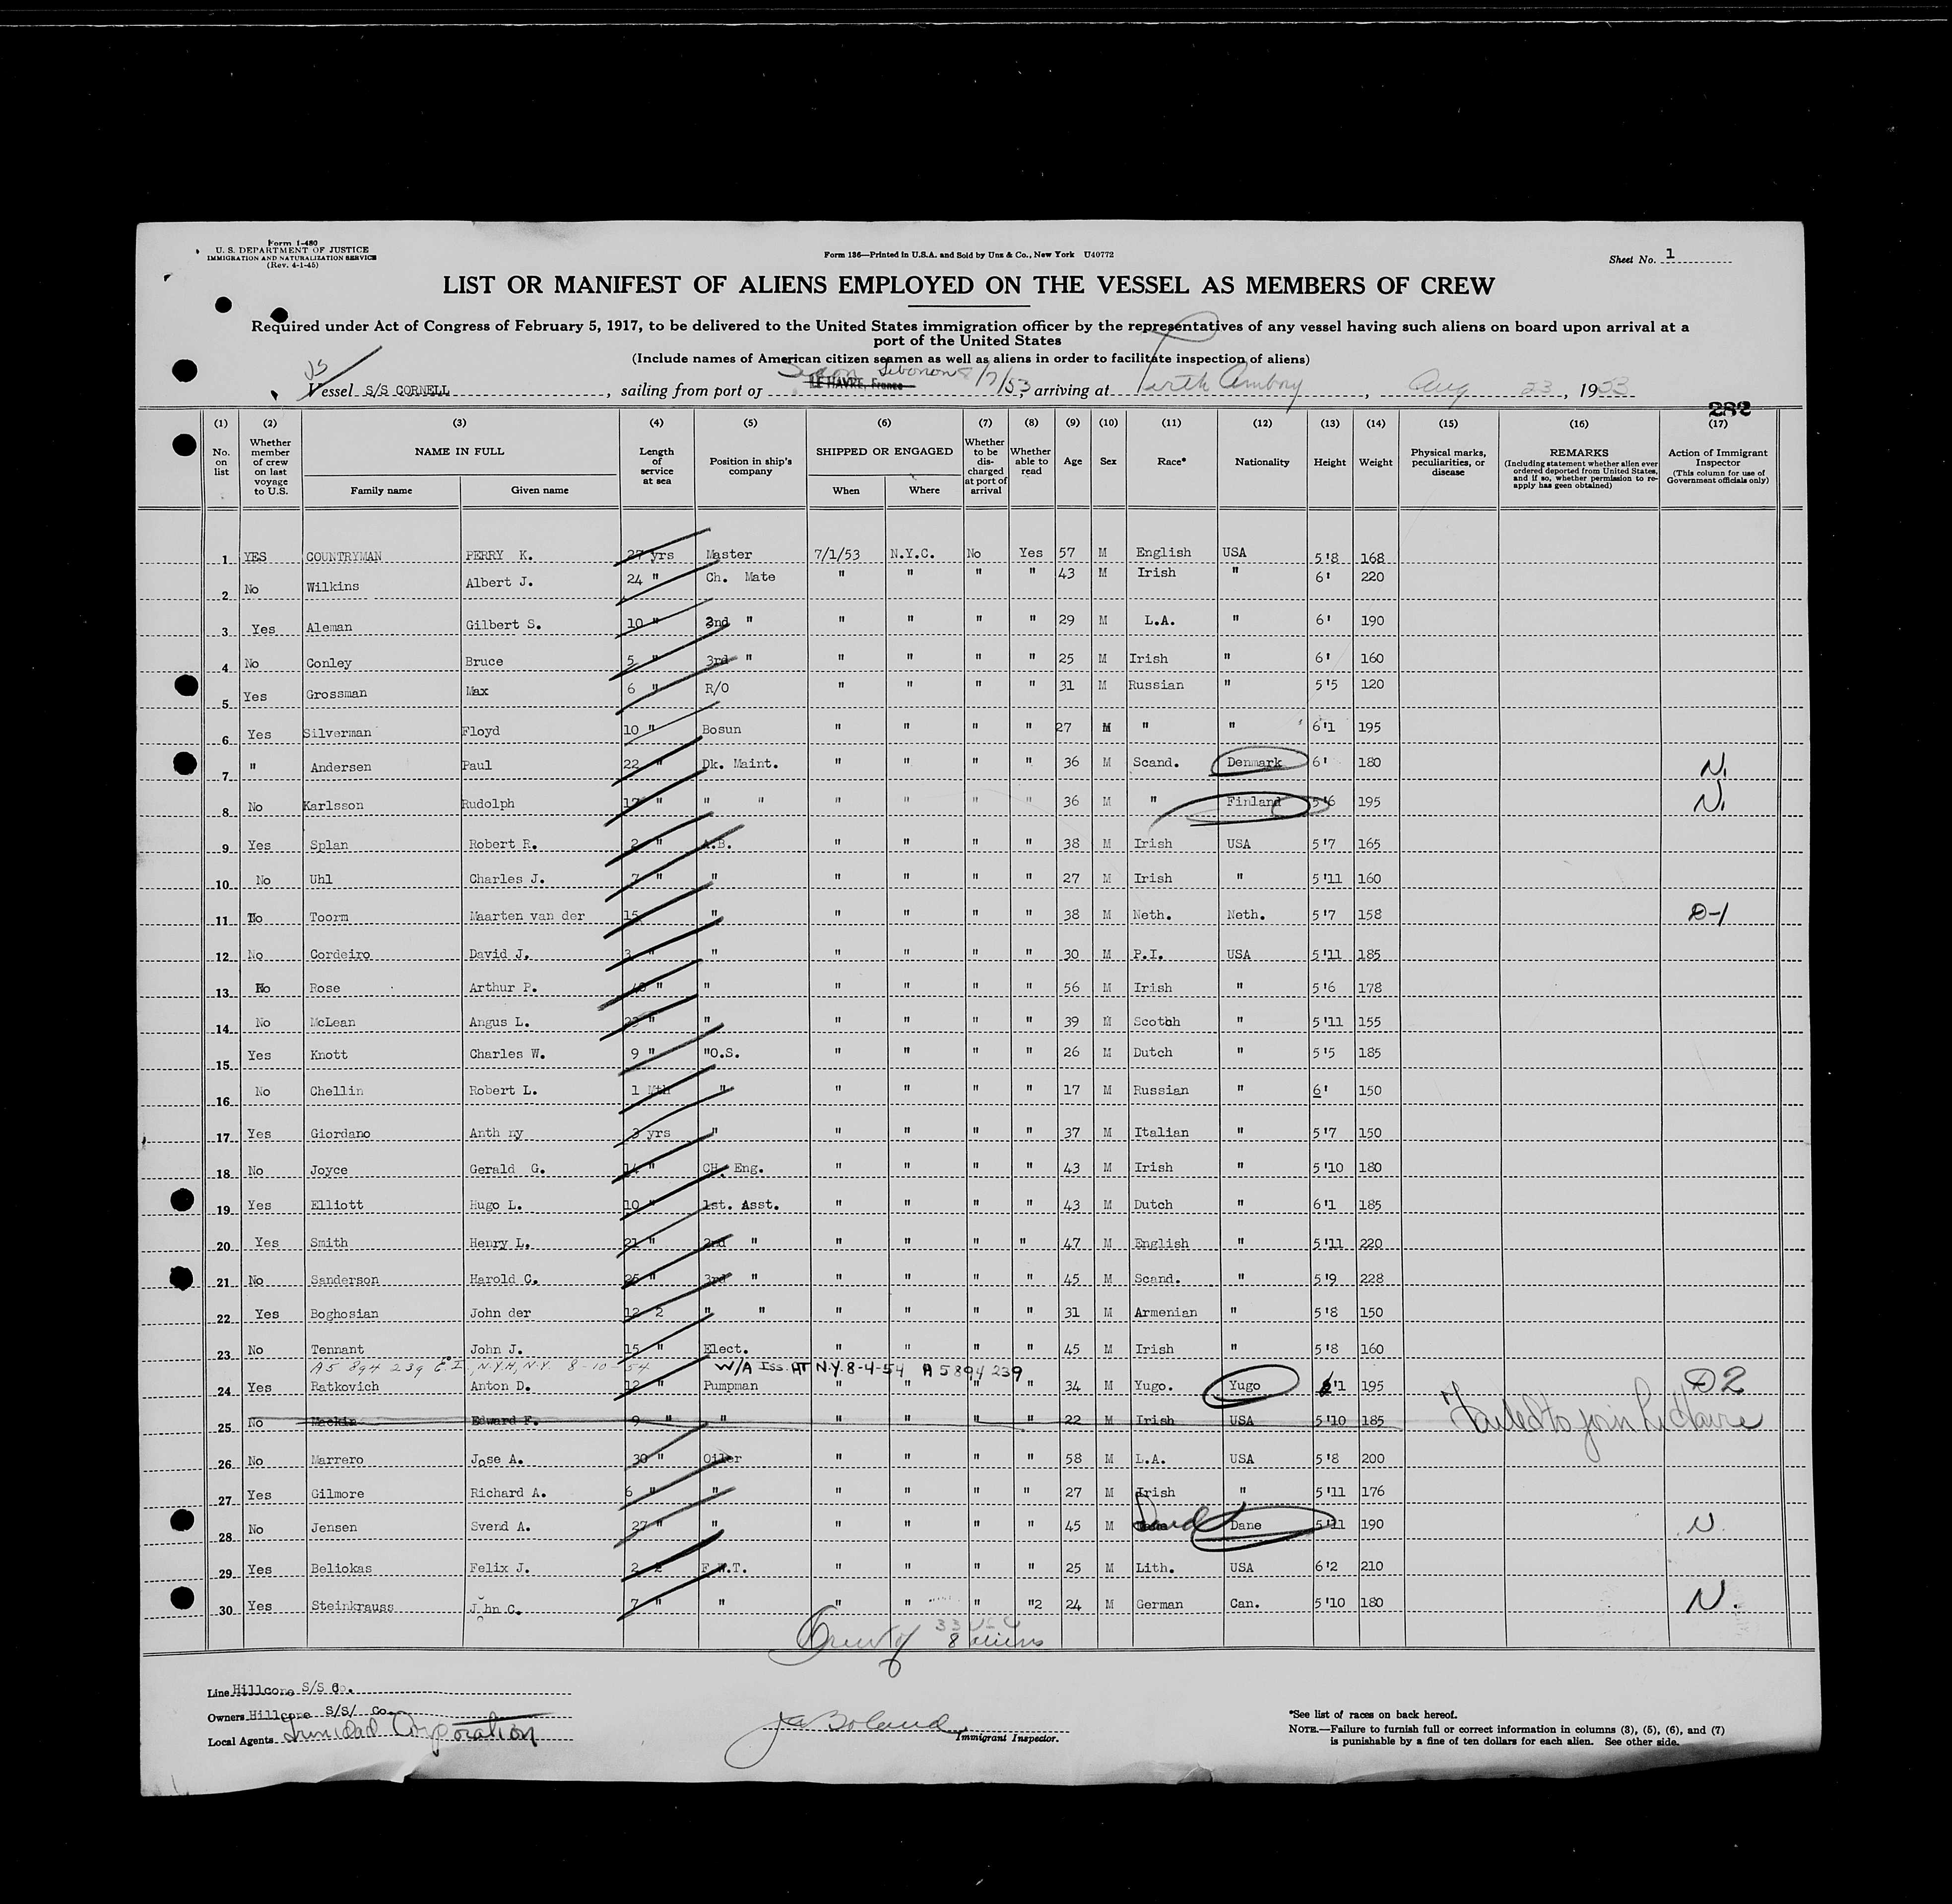 Form I-480
U. S. DEPARTMENT OF JUSTICE
IMMIGRATION AND NATURALIZATION SERVICE
(Rev. 4-1-45)
Form 136—Printed in U.S.A. and Sold by Unz & Co., New York U40772
Sheet No. 1
LIST OR MANIFEST OF ALIENS EMPLOYED ON THE VESSEL AS MEMBERS OF CREW
Required under Act of Congress of February 5, 1917, to be delivered to the United States immigration officer by the representatives of any vessel having such aliens on board upon arrival at a
port of the United States
(Include names of American citizen seamen as well as aliens in order to facilitate inspection of aliens)
Vessel S/S CORNELL, sailing from port of LE HAVRE, France Sidon Lebanon 8/7/53, arriving at Perth Amboy, Aug 23, 1953
282
(1) (2) (3) (4) (5) (6) (7) (8) (9) (10) (11) (12) (13) (14) (15) (16) (17)
No. on list
Whether member of crew on last voyage to U.S.
NAME IN FULL
Family name
Given name
Length of service at sea
Position in ship's company
SHIPPED OR ENGAGED
When
Where
Whether to be discharged at port of arrival
Whether able to read
Age
Sex
Race*
Nationality
Height
Weight
Physical marks, peculiarities, or disease
REMARKS
(Including statement whether alien ever ordered deported from United States, and if so, whether permission to re-apply has geen obtained)
Action of Immigrant Inspector
(This column for use of Government officials only)
1 YES COUNTRYMAN PERRY K. 27 yrs Master 7/1/53 N.Y.C. No Yes 57 M English USA 5'8 168
2 No Wilkins Albert J. 24 " Ch. Mate " " " " 43 M Irish " 6' 220
3 Yes Aleman Gilbert S. 10 " 2nd " " " " " 29 M L.A. " 6' 190
4 No Conley Bruce 5 " 3rd " " " " " 25 M Irish " 6' 160
5 Yes Grossman Max 6 " R/O " " " " 31 M Russian " 5'5 120
6 Yes Silverman Floyd 10 " Bosun " " " " 27 M " " 6'1 195
7 " Andersen Paul 22 " Dk. Maint. " " " " 36 M Scand. Denmark 6' 180 N.
8 No Karlsson Rudolph 17 " " " " " " " 36 M " Finland 5'6 195 N.
9 Yes Splan Robert R. 2 " A.B. " " " " 38 M Irish USA 5'7 165
10 No Uhl Charles J. 7 " " " " " " 27 M Irish " 5'11 160
11 No Toorm Maarten van der 15 " " " " " 38 M Neth. Neth. 5'7 158 D-1
12 No Cordeiro David J. 3 " " " " " " 30 M P.I. USA 5'11 185
13 No Rose Arthur P. " " " " " " 56 M Irish " 5'6 178
14 No McLean Angus L. 23 " " " " " " 39 M Scotch " 5'11 155
15 Yes Knott Charles W. 9 " "O.S. " " " " 26 M Dutch " 5'5 185
16 No Chellin Robert L. 1 Mth " " " " " 17 M Russian " 6' 150
17 Yes Giordano Anth ny 3 yrs " " " " " 37 M Italian " 5'7 150
18 No Joyce Gerald G. 14 " CH. Eng. " " " " 43 M Irish " 5'10 180
19 Yes Elliott Hugo L. 10 " 1st. Asst. " " " " 43 M Dutch " 6'1 185
20 Yes Smith Henry L. 21 " 2nd " " " " " 47 M English " 5'11 220
21 No Sanderson Harold C. 25 " 3rd " " " " " 45 M Scand. " 5'9 228
22 Yes Boghosian John der 12 2 " " " " " " 31 M Armenian " 5'8 150
23 No Tennant John J. 15 " Elect. " " " " 45 M Irish " 5'8 160
A5 894 239 E°I, N.Y.H, N.Y. 8-10-54 W/A Iss. AT N.Y. 8-4-54 A 5894 239
24 Yes Ratkovich Anton D. 12 " Pumpman " " " " 34 M Yugo. Yugo 6'1 195 D2
25 No Mackin Edward F. 9 " " " " " " 22 M Irish USA 5'10 185 Failed to join Le Havre
26 No Marrero Jose A. 30 " Oiler " " " " 58 M L.A. USA 5'8 200
27 Yes Gilmore Richard A. 6 " " " " " " 27 M Irish " 5'11 176
28 No Jensen Svend A. 27 " " " " " " 45 M Dane 5'11 190 N
29 Yes Beliokas Felix J. 2 2 F.W.T. " " " " 25 M Lith. USA 6'2 210
30 Yes Steinkrauss John C. 7 " " " " " "2 24 M German Can. 5'10 180 N.
Crew of 33 USC
8 aliens
Line Hillcone S/S Co.
Owners Hillcone S/S/ Co.
Local Agents Trinidad Corporation
JA Boland
Immigrant Inspector.
*See list of races on back hereof.
NOTE.—Failure to furnish full or correct information in columns (3), (5), (6), and (7)
is punishable by a fine of ten dollars for each alien. See other side.